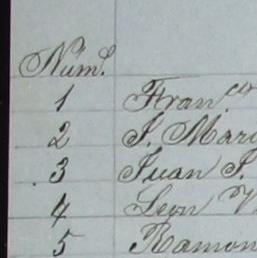 Núm.
1 Fran.co
2 J. Mar
3 Juan J.
4 Leon V
5 Ramon